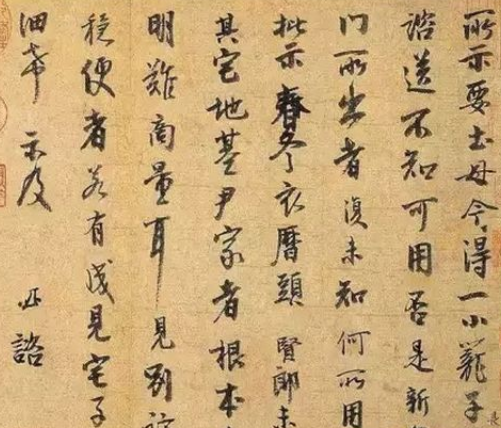 所示要土母今得一小籠子
諮送不知可用否是新
門所出者復未知何所用
批示春冬衣曆頭賢郎未
其宅地基尹家者根本
明難商量耳見別
穩便者若有成見宅子
細希示及 諮